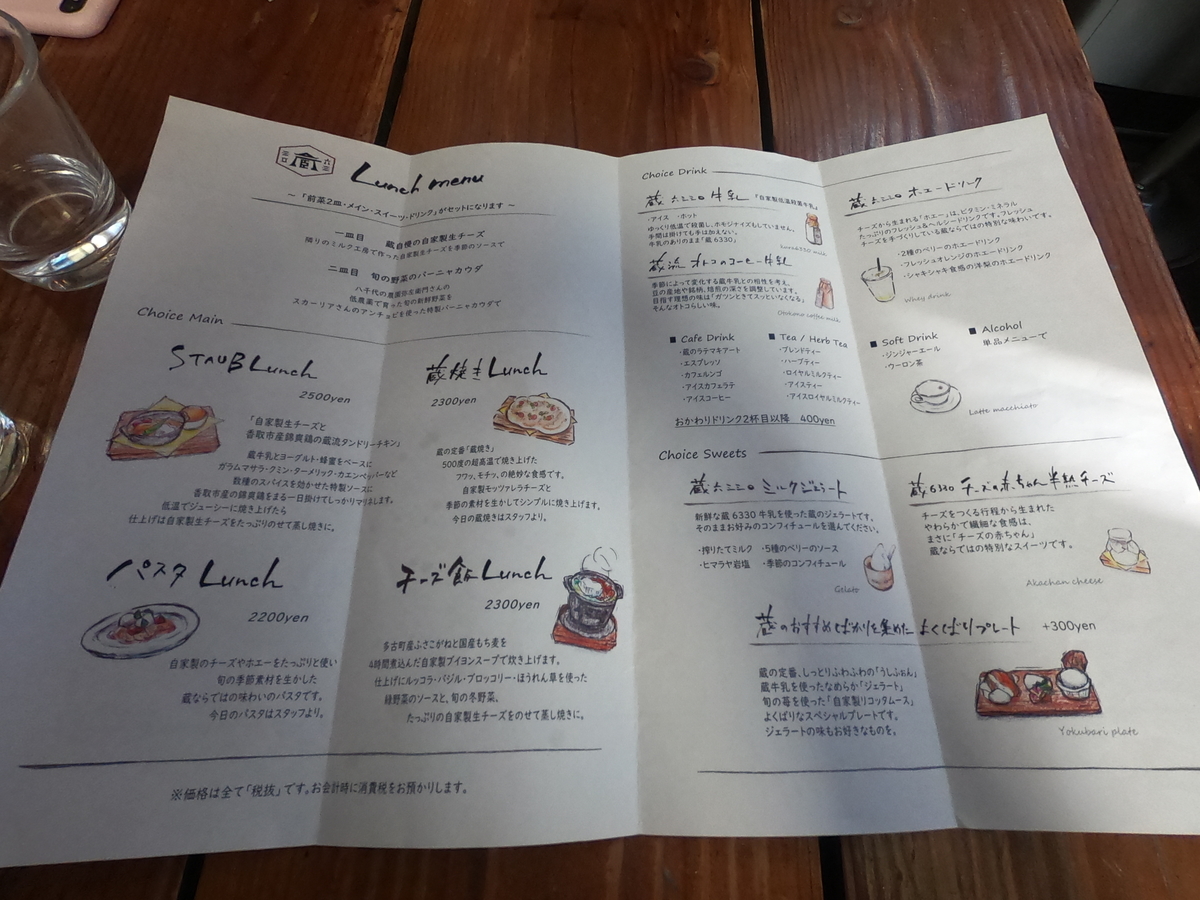 蔵
Lunch menu
～「前菜2皿・メイン・スイーツ・ドリンク」がセットになります～
一皿目 蔵自慢の自家製生チーズ
隣りのミルク工房で作った自家製生チーズを季節のソースで
二皿目 旬の野菜のバーニャカウダ
八千代の農園弥左衛門さんの
低農薬で育った旬の新鮮野菜を
スカーリアさんのアンチョビを使った特製バーニャカウダで
Choice Main
STAUB Lunch
2500yen
「自家製生チーズと
香取市産錦爽鶏の蔵流タンドリーチキン」
蔵牛乳とヨーグルト・蜂蜜をベースに
ガラムマサラ・クミン・ターメリック・カエンペッパーなど
数種のスパイスを効かせた特製ソースに
香取市産の錦爽鶏をまる一日掛けてしっかりマリネします。
低温でジューシーに焼き上げたら
仕上げは自家製生チーズをたっぷりのせて蒸し焼きに。
蔵焼きLunch
2300yen
蔵の定番「蔵焼き」
500度の超高温で焼き上げた
フワッ、モチッ、の絶妙な食感です。
自家製モッツァレラチーズと
季節の素材を生かしてシンプルに焼き上げます。
今日の蔵焼きはスタッフより。
パスタ Lunch
2200yen
自家製のチーズやホエーをたっぷりと使い
旬の季節素材を生かした
蔵ならではの味わいのパスタです。
今日のパスタはスタッフより。
チーズ飯 Lunch
2300yen
多古町産ふさこがねと国産もち麦を
4時間煮込んだ自家製ブイヨンスープで炊き上げます。
仕上げにルッコラ・バジル・ブロッコリー・ほうれん草を使った
緑野菜のソースと、旬の冬野菜。
たっぷりの自家製生チーズをのせて蒸し焼きに。
※価格は全て「税抜」です。お会計時に消費税をお預かりします。
Choice Drink
蔵六三三〇牛乳 「自家製低温殺菌牛乳」
・アイス ・ホット
ゆっくり低温で殺菌し、ホモジナイズもしていません。
手間は掛けても手は加えない。
牛乳のありのまま「蔵6330」
蔵流 オトコのコーヒー牛乳
季節によって変化する蔵牛乳との相性を考え、
豆の産地や銘柄、焙煎の深さを調整しています。
目指す理想の味は「ガツンときてスッといなくなる」
そんなオトコらしい味。
Otokono coffee milk
■ Cafe Drink
・蔵のラテマキアート
・エスプレッソ
・カフェルンゴ
・アイスカフェラテ
・アイスコーヒー
■ Tea / Herb Tea
・ブレンドティー
・ハーブティー
・ロイヤルミルクティー
・アイスティー
・アイスロイヤルミルクティー
おかわりドリンク2杯目以降 400yen
蔵六三三〇 ホエードリンク
チーズから生まれる「ホエー」は、ビタミン・ミネラル
たっぷりのフレッシュ&ヘルシードリンクです。フレッシュ
チーズを手づくりしている蔵ならではの特別な味わいです。
・2種のベリーのホエードリンク
・フレッシュオレンジのホエードリンク
・シャキシャキ食感の洋梨のホエードリンク
Whey drink
■ Soft Drink
・ジンジャーエール
・ウーロン茶
■ Alcohol
単品メニューで
Latte macchiato
Choice Sweets
蔵六三三〇 ミルクジェラート
新鮮な蔵6330牛乳を使った蔵のジェラートです。
そのままお好みのコンフィチュールを選んでください。
・搾りたてミルク ・5種のベリーのソース
・ヒマラヤ岩塩 ・季節のコンフィチュール
Gelato
蔵6330 チーズの赤ちゃん 半熟チーズ
チーズをつくる行程から生まれた
やわらかで繊細な食感は、
まさに「チーズの赤ちゃん」
蔵ならではの特別なスイーツです。
Akachan cheese
蔵のおすすめばかりを集めた よくばりプレート +300yen
蔵の定番、しっとりふわふわの「うしふぉん」
蔵牛乳を使ったなめらか「ジェラート」
旬の苺を使った「自家製リコッタムース」
よくばりなスペシャルプレートです。
ジェラートの味もお好きなものを。
Yokubari plate